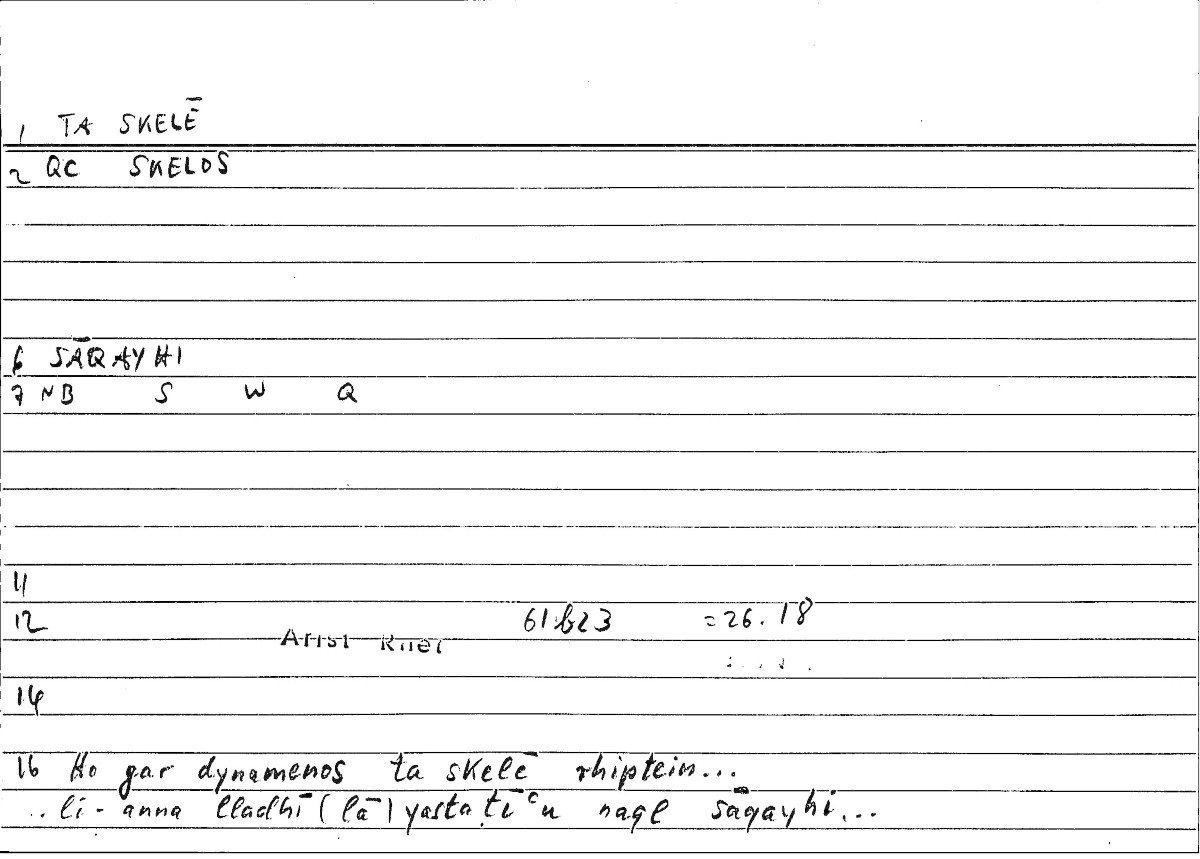 1 TA SKELĒ
2 QC SKELOS
6 SĀQAYHI
7 NB S W Q
11
12 61b23 =26.18
Arist Rhet
14
16 Ho gar dynamenos ta skelē rhiptein...
.. li-anna lladhī (lā) yastaṭīʿu naql sāqayhi...